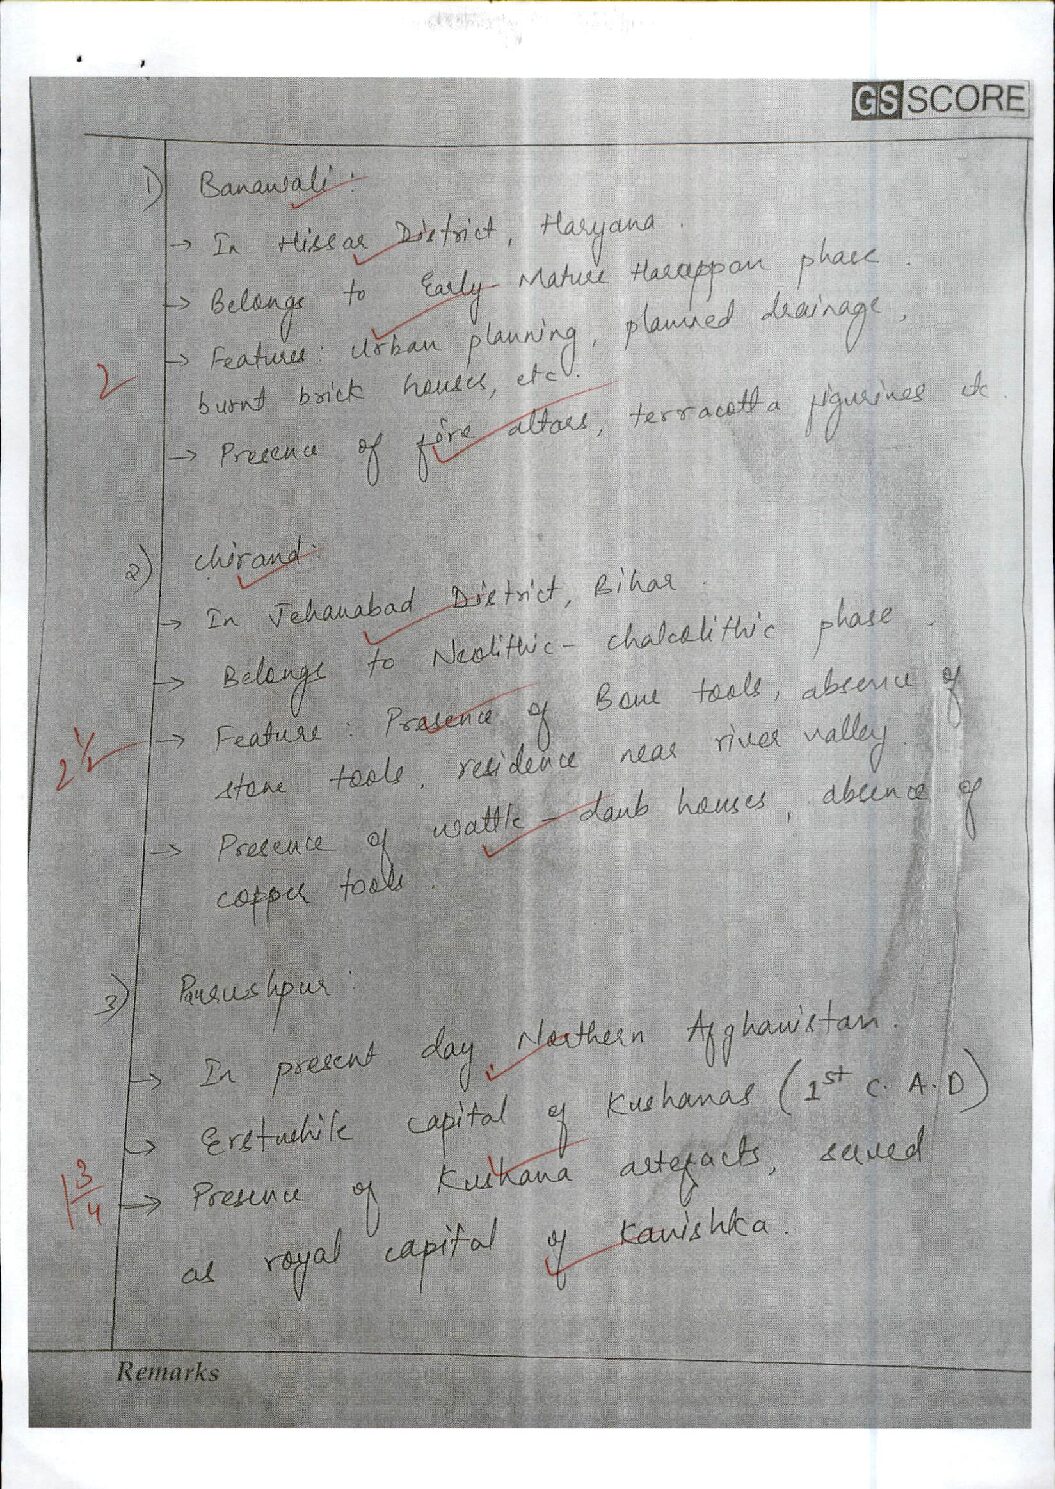 GS SCORE
1) Banawali :
→ In Hissar District, Haryana.
→ Belongs to Early-Mature Harappan phase.
→ Features: Urban planning, planned drainage,
burnt brick houses, etc.
2
→ Presence of fire altars, terracotta figurines etc.
2) Chirand:
→ In Jehanabad District, Bihar.
→ Belongs to Neolithic-chalcolithic phase.
→ Feature: Presence of Bone tools, absence of
2 1/2
stone tools, residence near river valley.
→ Presence of wattle-daub houses, absence of
copper tools.
3) Purushpur:
→ In present day Northern Afghanistan.
→ Erstwhile capital of Kushanas (1st C. A.D)
→ Presence of Kushana artefacts, served
1 3/4
as royal capital of Kanishka.
Remarks